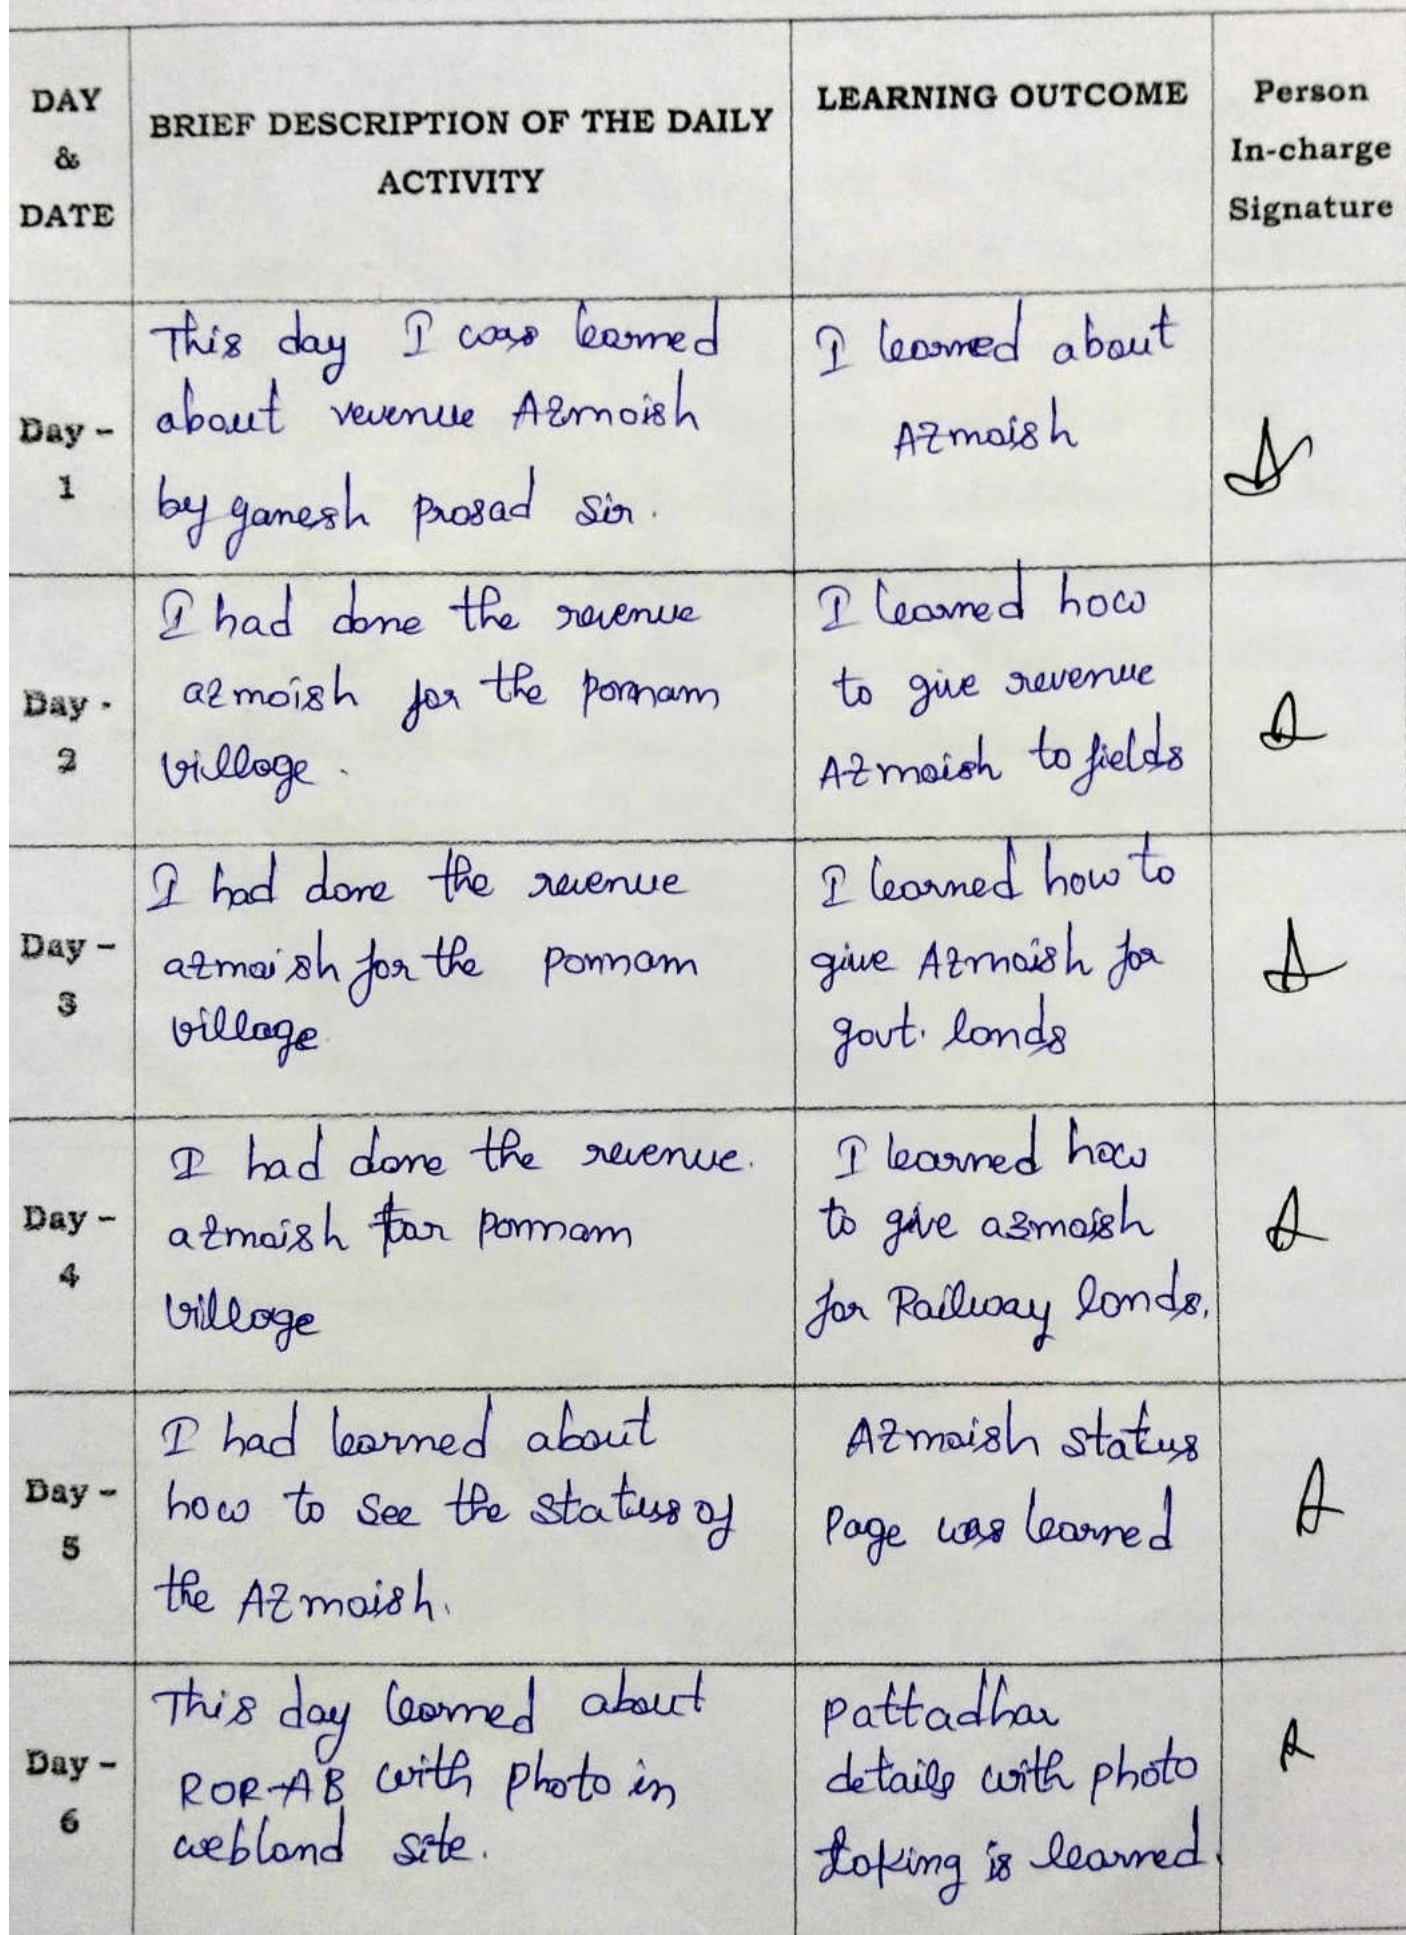 DAY
&
DATE
BRIEF DESCRIPTION OF THE DAILY
ACTIVITY
LEARNING OUTCOME
Person
In-charge
Signature
Day -
1
This day I was learned
about revenue Azmoish
by ganesh prosad sir.
I learned about
Azmaish
Day -
2
I had done the revenue
azmoish for the ponnam
village.
I learned how
to give revenue
Azmaish to fields
Day -
3
I had done the revenue
azmaish for the ponnam
village.
I learned how to
give Azmaish for
govt. lands
Day -
4
I had done the revenue.
azmaish for ponnam
village
I learned how
to give azmaish
for Railway lands.
Day -
5
I had learned about
how to see the status of
the Azmaish.
Azmaish status
Page was learned
Day -
6
This day learned about
ROR-AB with photo in
webland site.
pattadhar
details with photo
taking is learned.